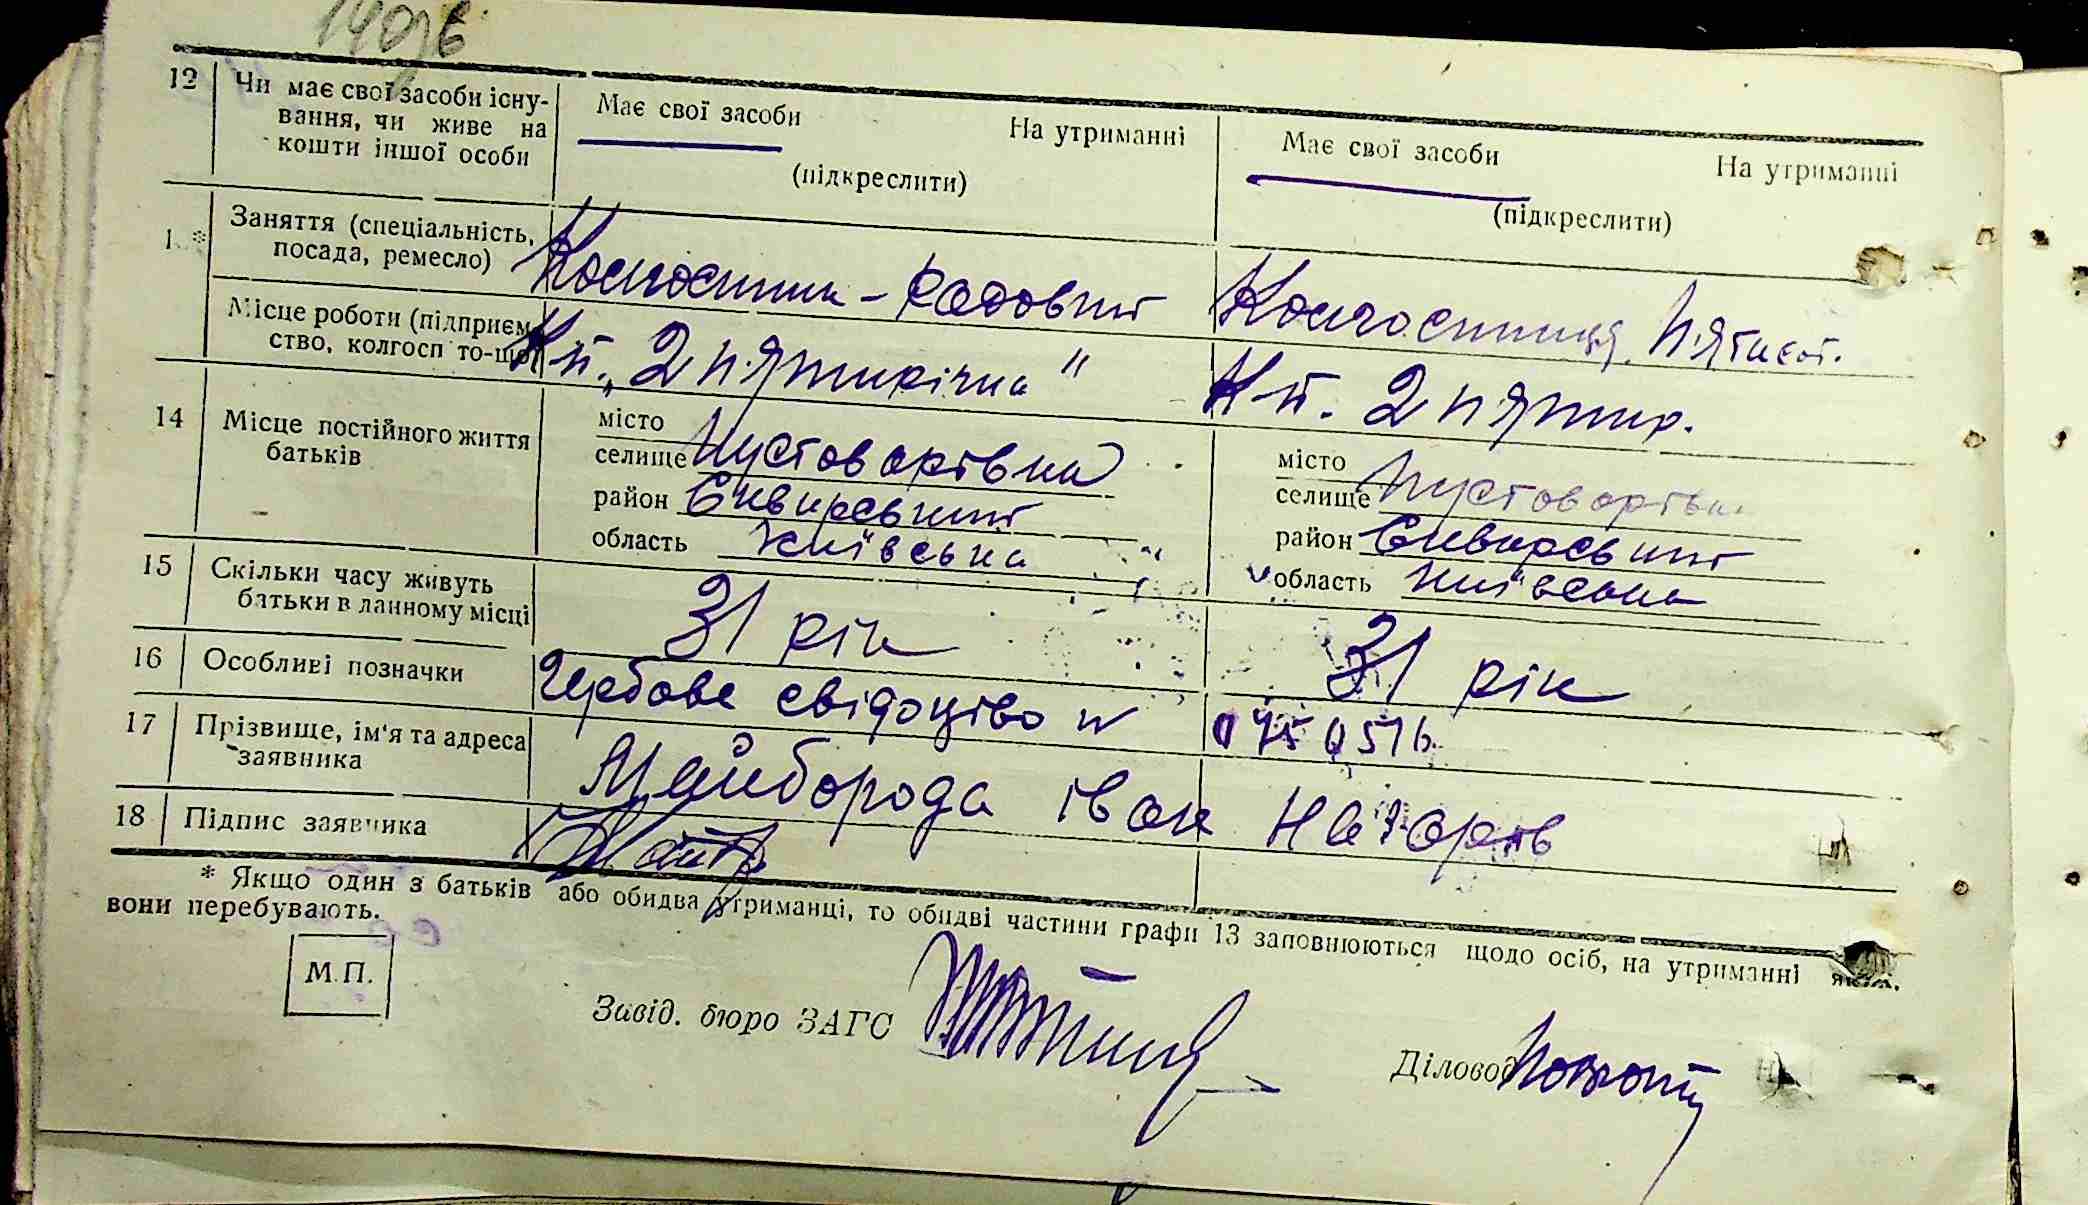 140зв
12 Чи має свої засоби існу- Має свої засоби На утриманні Має свої засоби На утриманні
вання, чи живе на
кошти іншої особи (підкреслити) (підкреслити)
Заняття (спеціальність, Колгоспник - Рядовий Колгоспниця
посада, ремесло)
Місце роботи (підприєм- Кп. „2 п'ятирічка" Кп. 2 п'ятир.
ство, колгосп то-що
14 Місце постійного життя місто місто
батьків селище Пустоварівка селище Пустоварівка
район Сквирський район Сквирський
область Київська область Київська
15 Скільки часу живуть 31 рік 31 рік
батьки в данному місці
16 Особливі позначки Гербове свідоцтво N 0750516
17 Прізвище, ім'я та адреса Майборода Іван
заявника
18 Підпис заявника
* Якщо один з батьків або обидва утриманці, то обидві частини графи 13 заповнюються щодо осіб, на утриманні яких
вони перебувають.
М.П.
Завід. бюро ЗАГС
Діловод